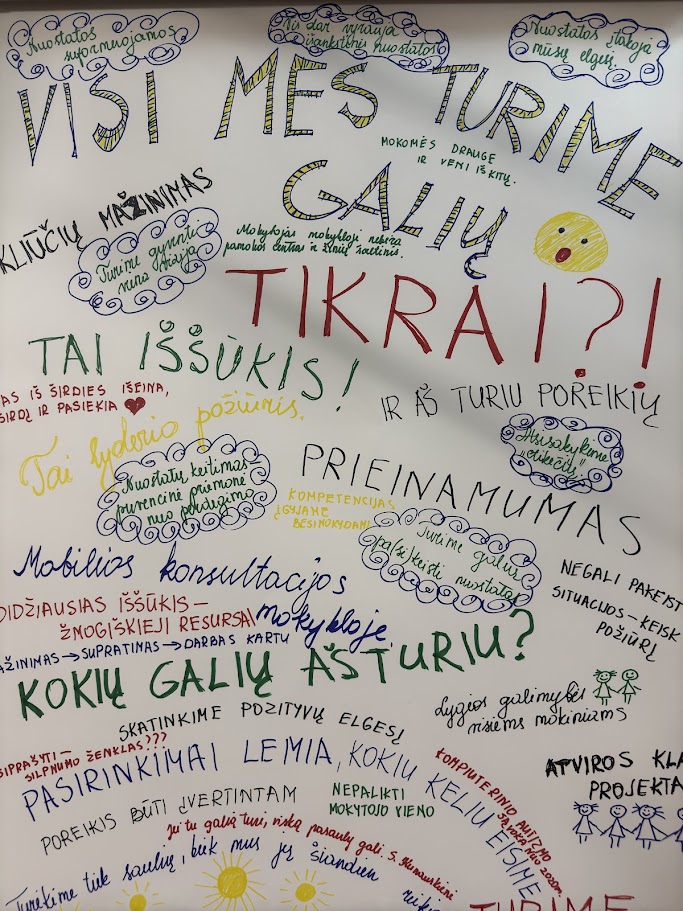 Nuostatos
suformuojamos
Vis dar vyrauja
išankstinės nuostatos
Nuostatos įtakoja
mūsų elgesį.
VISI MES TURIME
GALIŲ
MOKOMĖS DRAUGE
IR VIENI IŠ KITŲ.
KLIŪČIŲ MAŽINIMAS
Turime gyventi
vieno
Mokytojas mokykloje nebėra
pamokos centras ir žinių šaltinis.
TIKRAI?!
TAI IŠŠŪKIS!
AS IŠ ŠIRDIES IŠEINA,
ŠIRDĮ IR PASIEKIA
IR AŠ TURIU POREIKIŲ
Tai lyderio požiūris.
Atsisakykime
"etikečių"
Nuostatų keitimas
prevencinė priemonė
nuo perdegimo
PRIEINAMUMAS
KOMPETENCIJAS
ĮGYJAME
BESIMOKYDAMI
Turime galią
pa(si)keisti nuostatas
Mobilios konsultacijos
mokykloje
NEGALI PAKEIST
SITUACIJOS - KEISK
POŽIŪRĮ
DIDŽIAUSIAS IŠŠŪKIS -
ŽMOGIŠKIEJI RESURSAI
AŽINIMAS → SUPRATIMAS → DARBAS KARTU
KOKIŲ GALIŲ AŠ TURIU?
Lygios galimybės
visiems mokiniams
SKATINKIME POZITYVŲ ELGESĮ
SIPRAŠYTI -
SILPNUMO ŽENKLAS???
PASIRINKIMAI LEMIA, KOKIU KELIU EISIME
KOMPIUTERINIO AUTIZMO
SĄVOKA NUO 2020m.
ATVIROS KLA
PROJEKTA
POREIKIS BŪTI ĮVERTINTAM
NEPALIKTI
MOKYTOJO VIENO
Jei tu galią turi, viską pasauly gali S.
Turėkime tiek saulių, kiek mus jų šiandien reikia
TURIME